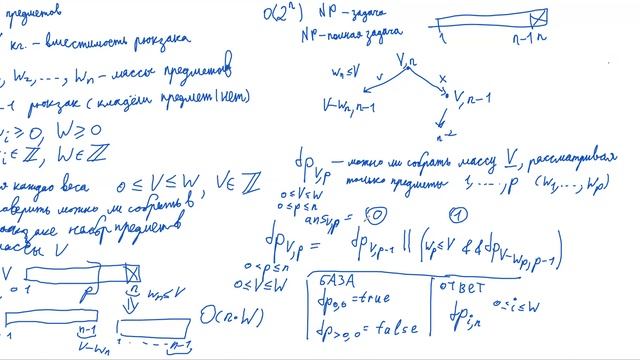 предметов
кг. – вместимость рюкзака
w₂, ..., wₙ – массы предметов
-1 рюкзак (кладём предмет | нет)
≥ 0, W ≥ 0
∈ ℤ, W ∈ ℤ
каждого веса 0 ≤ V ≤ W, V ∈ ℤ
можно ли собрать в
набор предметов
массы V
V
0 1 p n wₙ ≤ V
n-1
V-wₙ
1 ..... n-1
O(n·W)
O(2ⁿ) NP – задача
NP – полная задача
1 n-1 n
V, n
wₙ ≤ V v x
V-wₙ, n-1 V, n-1
n-2
dp V,p – можно ли собрать массу V, рассматривая
только предметы 1, ...., p (w₁, ..., wₚ)
0 ≤ V ≤ W
0 ≤ p ≤ n
ans v,p = 0 1
dp V,p = dp V,p-1 || (wₚ ≤ V && dp V-wₚ, p-1)
0 < p ≤ n
0 ≤ V ≤ W
БАЗА
dp 0,0 = true
dp >0,0 = false
ОТВЕТ
dp i,n 0 ≤ i ≤ W